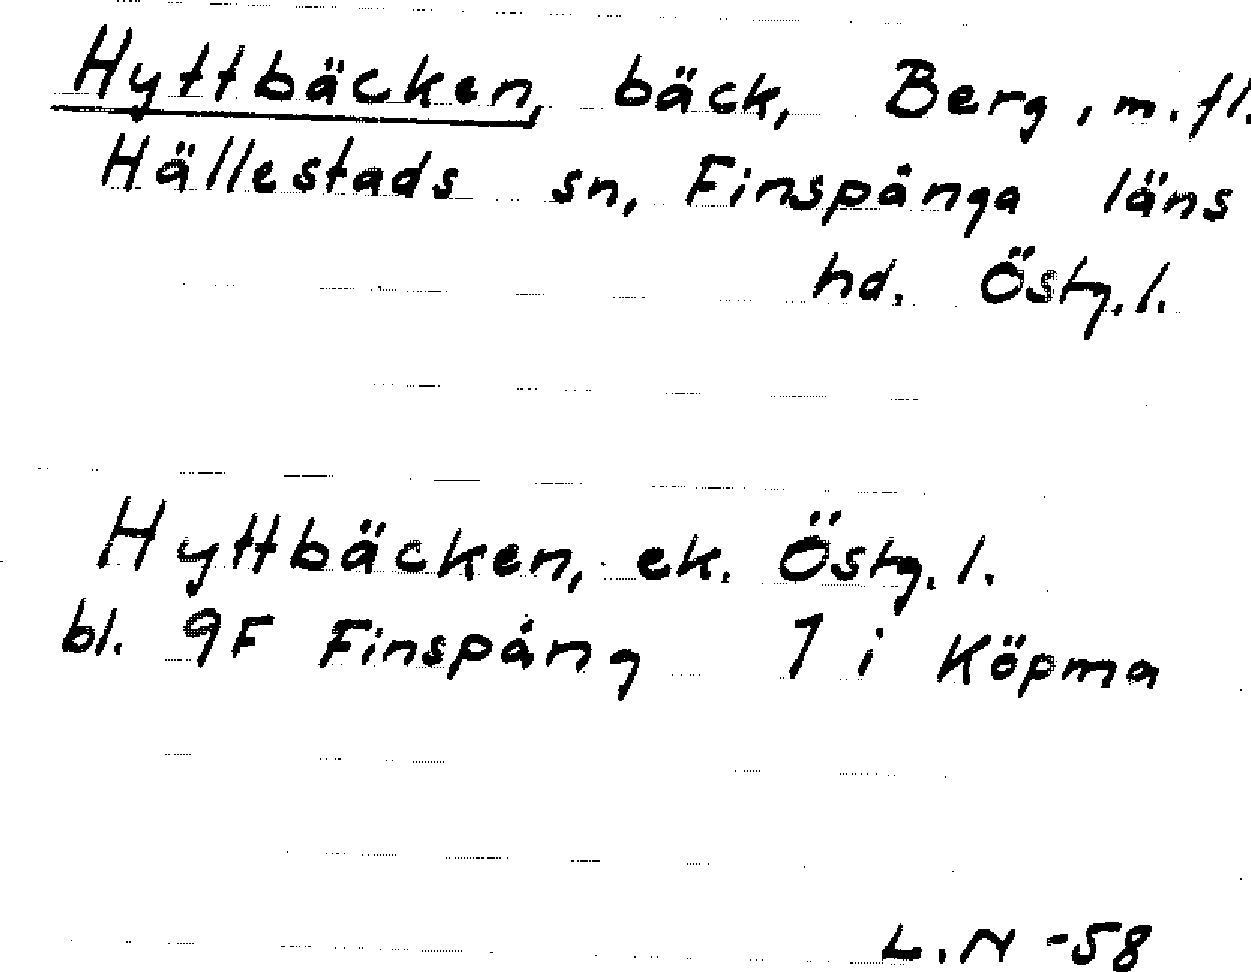 Hyttbäcken, bäck, Berg, m.fl.
Hällestads sn, Finspånga läns
hd. Östg.l.
Hyttbäcken, ek. Östg.l.
bl. 9F Finspång 7 i Köpma
L.N -58